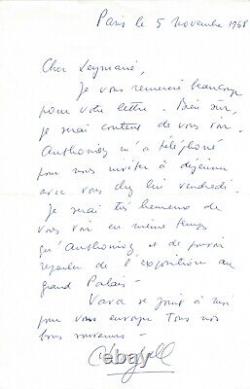 Paris le 5 novembre 1968
Cher Leymarie,
Je vous remercie beaucoup
pour votre lettre. Bien sûr,
je serai content de vous voir.
Anthonioz m'a téléphoné
pour nous inviter à déjeuner
avec vous chez lui vendredi.
Je serai très heureux de
vous voir en même temps
qu'Anthonioz et de pouvoir
reparler de l'exposition au
grand Palais.
Vava se joint à moi
pour vous envoyer tous nos
bons souvenirs.
Chagall